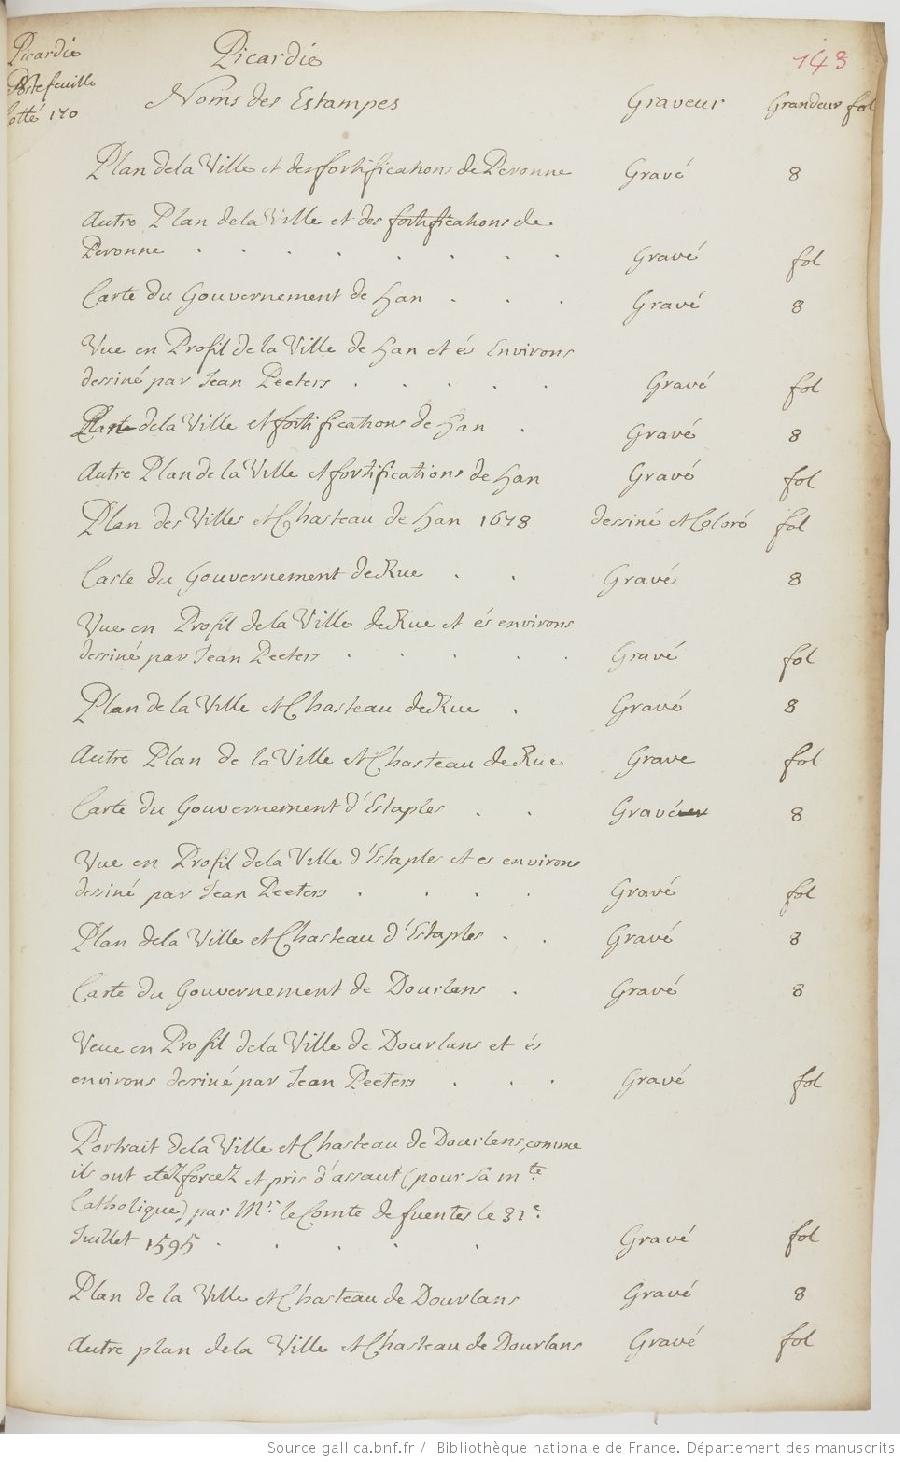 Picardie
Portefeuille
cotté 170
Picardie
143
Noms des Estampes Graveur Grandeur fol
Plan de la Ville et des fortifications de Peronne Gravé 8
Autre Plan de la Ville et des fortifications de
Peronne . . . . . . . Gravé fol
Carte du Gouvernement de Han . . . Gravé 8
Vue en Profil de la Ville de Han et és Environs
dessiné par Jean Peeters . . . . . Gravé fol
Plan de la Ville et fortifications de Han . Gravé 8
Autre Plan de la Ville et fortifications de Han Gravé fol
Plan des Villes et Chasteau de Han 1678 dessiné et Coloré fol
Carte du Gouvernement de Rue . . Gravé 8
Vue en Profil de la Ville de Rue et és environs
dessiné par Jean Peeters . . . . . Gravé fol
Plan de la Ville et Chasteau de Rue . Gravé 8
Autre Plan de la Ville et Chasteau de Rue Grave fol
Carte du Gouvernement d'Estaples . . Gravé 8
Vue en Profil de la Ville d'Estaples et es environs
dessiné par Jean Peeters . . . . Gravé fol
Plan de la Ville et Chasteau d'Estaples . . Gravé 8
Carte du Gouvernement de Dourlens . Gravé 8
Veue en Profil de la Ville de Dourlans et és
environs dessiné par Jean Peeters . . . Gravé fol
Portrait de la Ville et Chasteau de Dourlens, comme
ils ont etez forcez et pris d'assaut (pour Sa m.te
Catholique) par Mr. le Comte de fuentes le 31e.
Juillet 1595 . . . . Gravé fol
Plan de la Ville et Chasteau de Dourlans Gravé 8
Autre plan de la Ville et Chasteau de Dourlans Gravé fol
Source gallica.bnf.fr / Bibliothèque nationale de France. Département des manuscrits